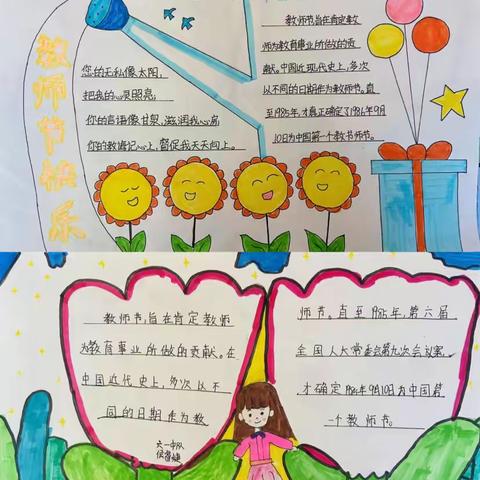 教师节快乐
您的无私像太阳,
把我的心灵照亮;
你的言语像甘泉,滋润我心房
你的教诲记心上,督促我天天向上。
教师节旨在肯定教
师为教育事业所做的贡
献。中国近现代史上,多次
以不同的日期作为教师节。直
至1985年,才真正确定了1986年9月
10日为中国第一个教书师节。
教师节,旨在肯定教师
为教育事业所做的贡献。在
中国近代史上,多次以不
同的日期作为教
六一中队
师节。直至1985年,第六届
全国人大常委会第九次会议案,
才确定1985年9月10日为中国第
一个教师节。